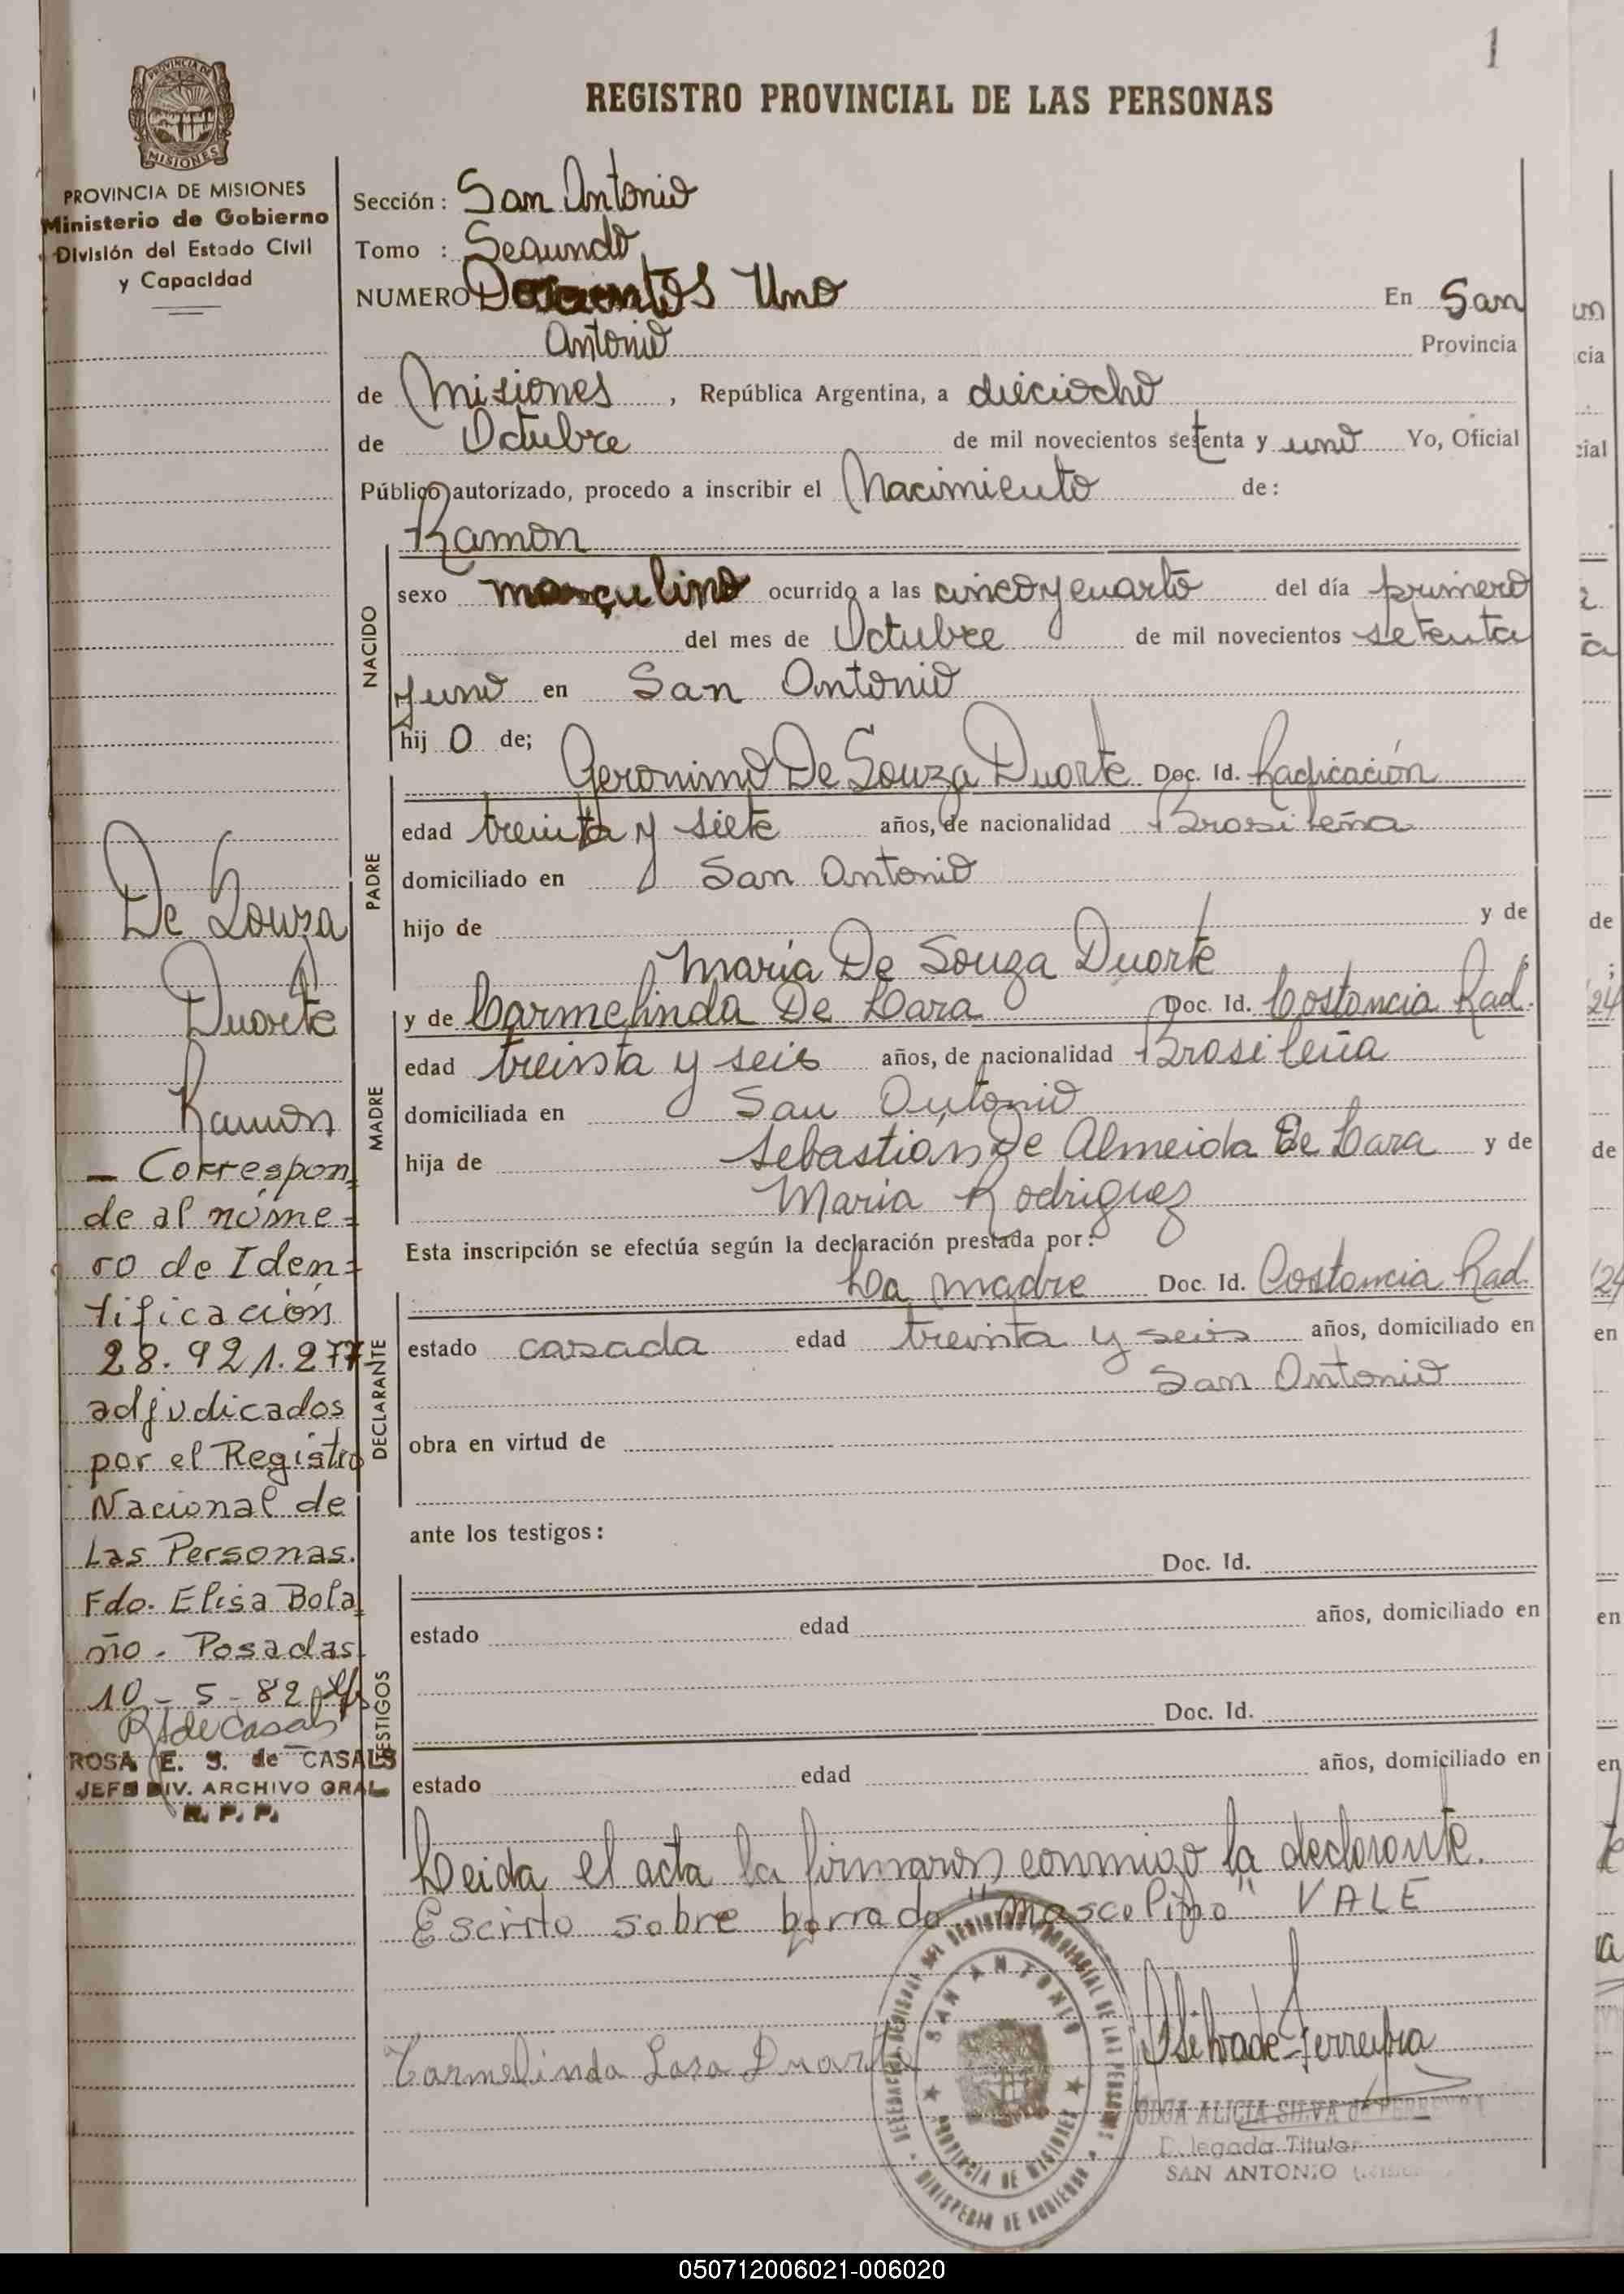 1
REGISTRO PROVINCIAL DE LAS PERSONAS
PROVINCIA DE
MISIONES
PROVINCIA DE MISIONES
Ministerio de Gobierno
División del Estado Civil
y Capacidad
Sección: San Antonio
Tomo : Segundo
NUMERO Doscientos Uno En San
Antonio Provincia
de Misiones, República Argentina, a dieciocho
de Octubre de mil novecientos setenta y uno Yo, Oficial
Público autorizado, procedo a inscribir el Nacimiento de:
Ramon
NACIDO
sexo masculino ocurrido a las cinco y cuarto del día primero
del mes de Octubre de mil novecientos setenta
y uno en San Antonio
hij o de;
PADRE
Geronimo De Souza Duarte Doc. Id. Radicación
edad treinta y siete años, de nacionalidad Brasileña
domiciliado en San Antonio
hijo de y de
Maria De Souza Duarte ;
MADRE
y de Carmelinda De Lara Doc. Id. Costancia Rad.
edad treinta y seis años, de nacionalidad Brasileña
domiciliada en San Antonio
hija de Sebastián De Almeida De Lara y de
Maria Rodriguez
Esta inscripción se efectúa según la declaración prestada por:
DECLARANTE
La madre Doc. Id. Costancia Rad.
estado casada edad treinta y seis años, domiciliado en
San Antonio
obra en virtud de
ante los testigos:
TESTIGOS
Doc. Id.
estado edad años, domiciliado en
Doc. Id.
estado edad años, domiciliado en
Leida el acta la firmaron conmigo la declarante.
Escrito sobre borrado "masculino" VALE
Carmelinda Lara Duarte
DELEGACION DIVISION DEL REGISTRO PROVINCIAL DE LAS PERSONAS
SAN ANTONIO
PROVINCIA DE MISIONES
MINISTERIO DE GOBIERNO
OLGA ALICIA SILVA de FERREYRA
Delegada Titular
SAN ANTONIO
De Souza
Duarte
Ramon
- Correspon=
de al núme=
ro de Iden=
tificación
28.921.277
adjudicados
por el Registro
Nacional de
Las Personas.
Fdo. Elisa Bola
ño. Posadas
10-5-82
RSdeCasals
ROSA E. S. de CASALS
JEFE DIV. ARCHIVO GRAL
R. P. P.
050712006021-006020